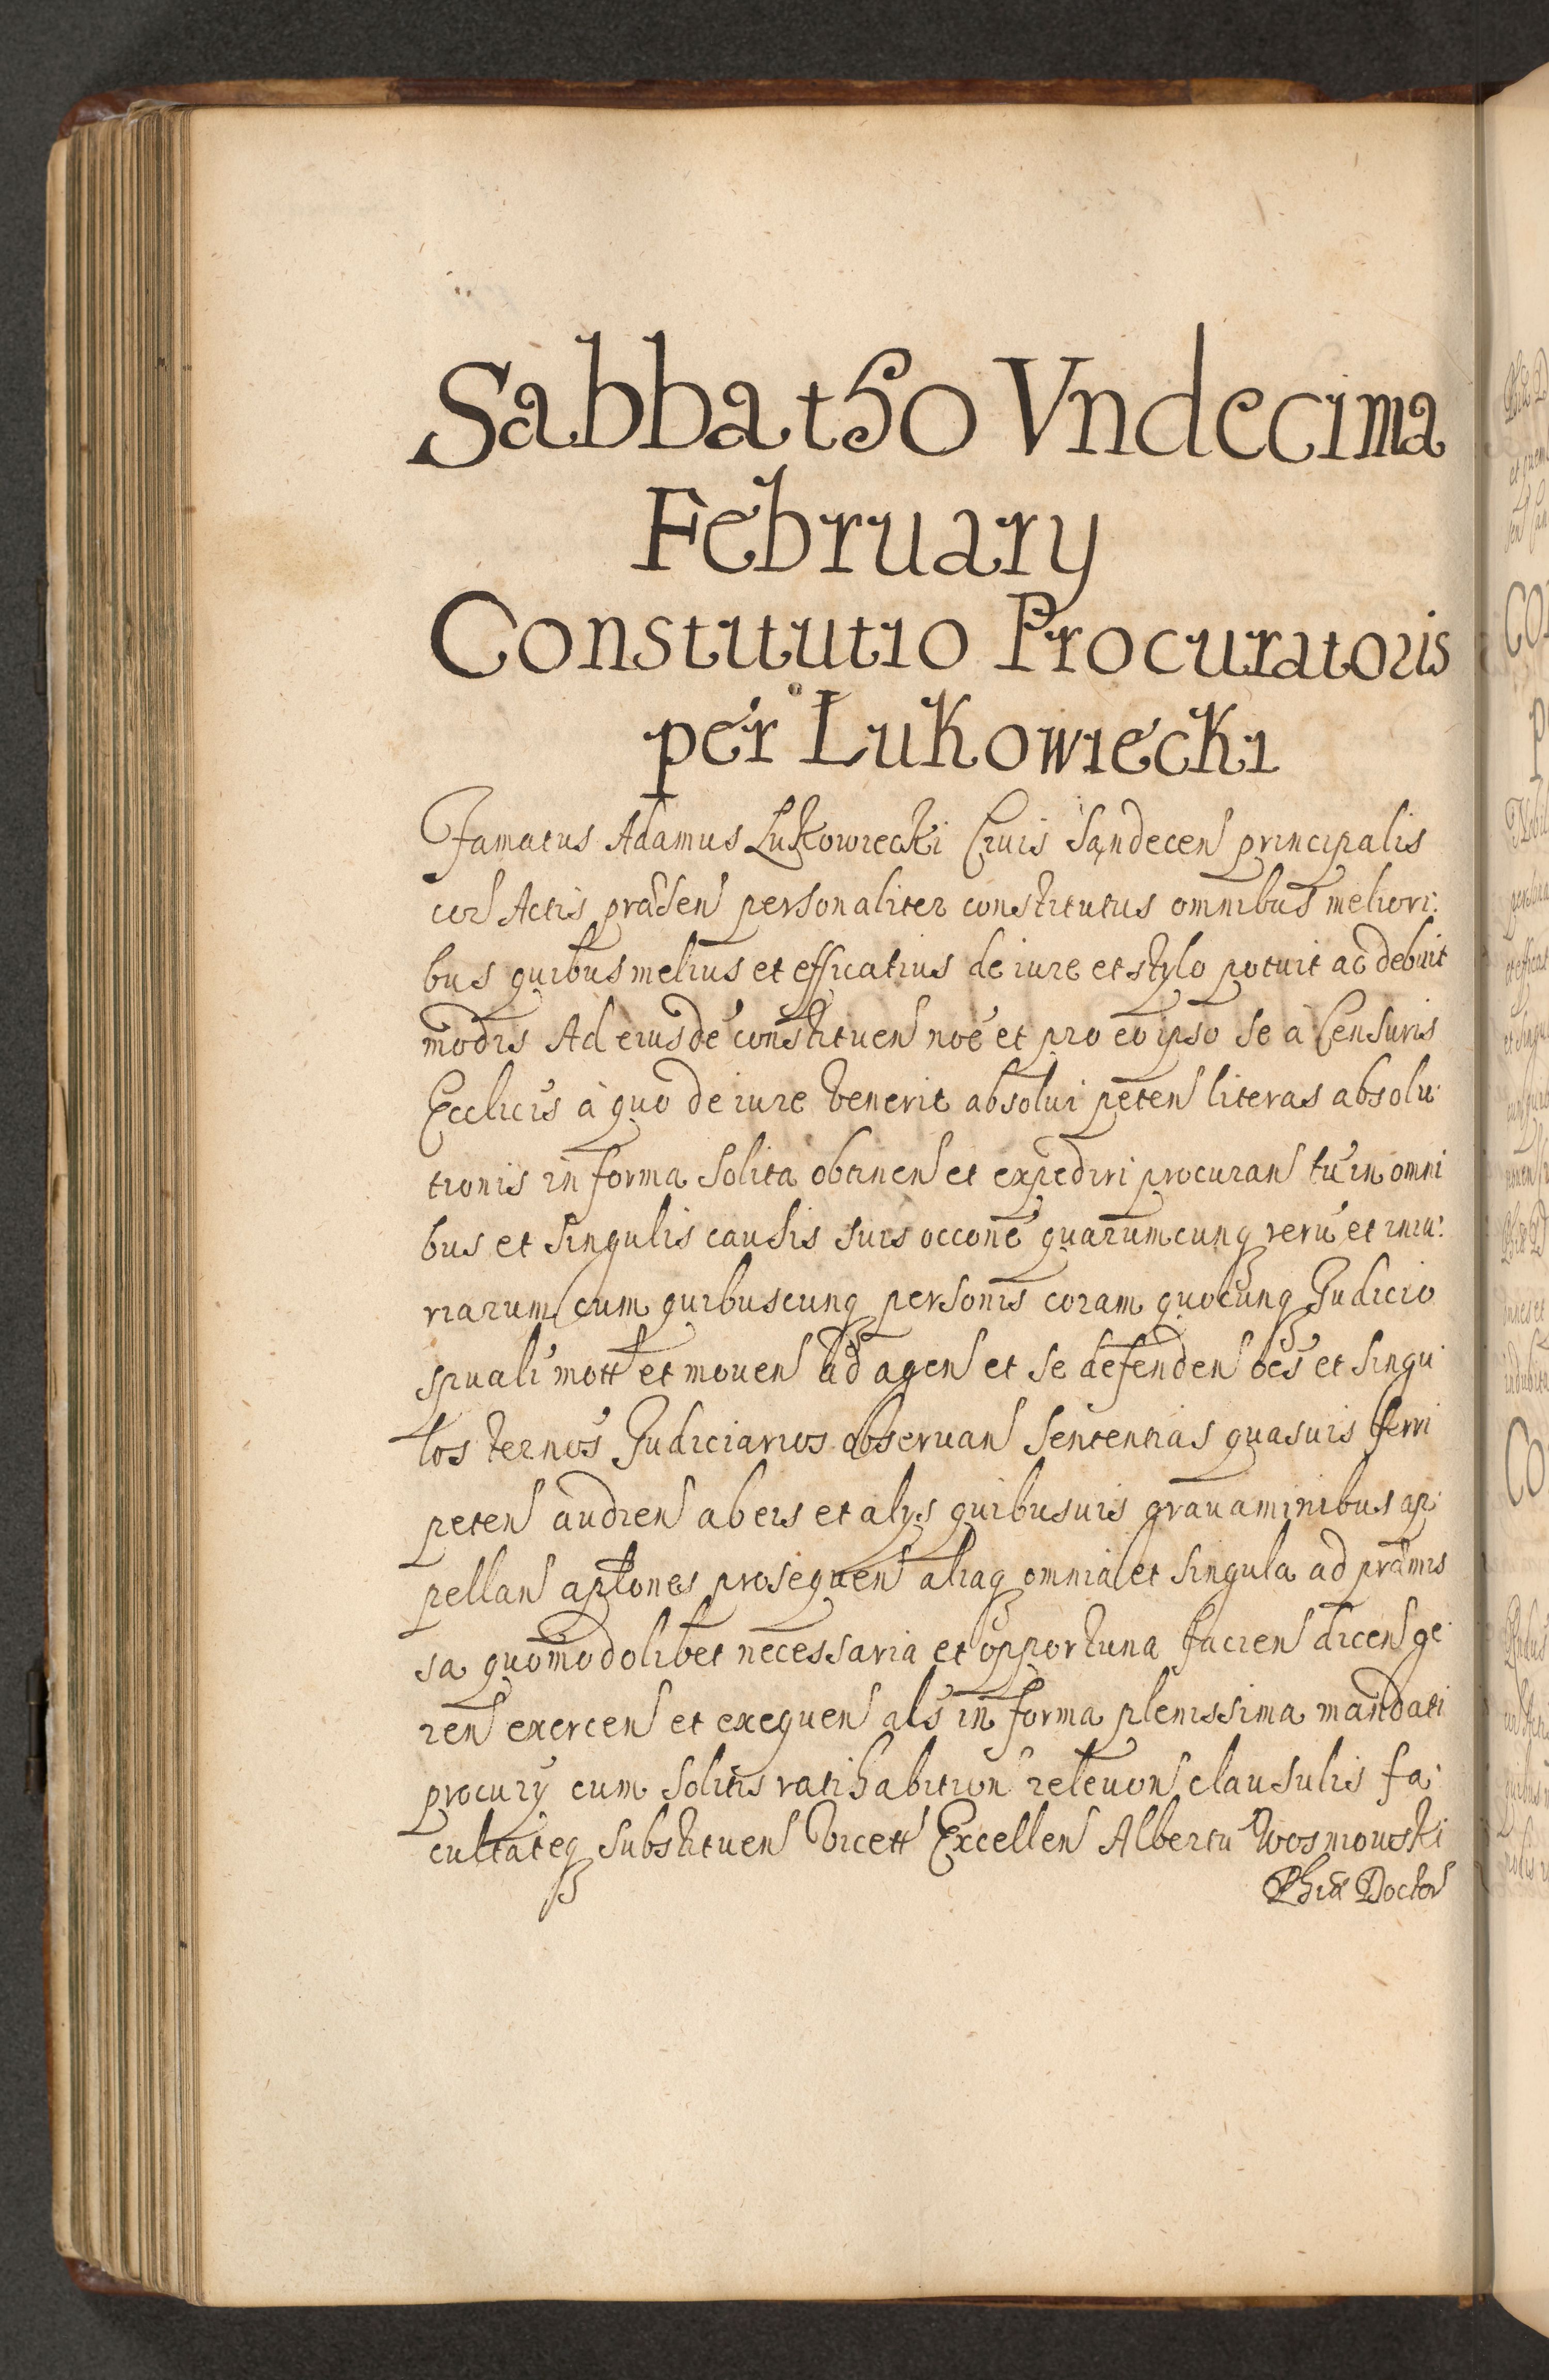 Sabbatho Vndecima
February
Constitutio Procuratoris
per Lukowiecki
Famatus Adamus Lukowiecki Ciuis Sandecen principalis
cor Actis præsen personaliter constitutus omnibus meliori:
bus quibus melius et efficatius de iure et stylo potuit ac debuit
modis Ad eiusdē constituen noē et pro eo ipso se à Censuris
Ecclicis à quo de iure venerit absolui peten literas absolu:
tionis in forma solita obtinen et expediri procuran tū in omni
bus et singulis causis suis occone quarumcunq rerū et iniu:
riarum cum quibuscunq personis coram quocunq Judicio
spuali mott et mouen ad agen et se defenden oēs et singu
los ternos Judiciarios obseruan sententias quasuis ferri
peten audien ab eis et alys quibusuis grauaminibus ap:
pellan aplones prosequen aliaq omnia et singula ad præmis
sa quomodolibet necessaria et opportuna facien dicen ge:
ren exercen et exequen als in forma plenissima mandati
procury cum solitis ratihabition releuon clausulis fa:
cultateq substituen Dicett Excellen Albertū Wosniowski
Phiæ Doctor